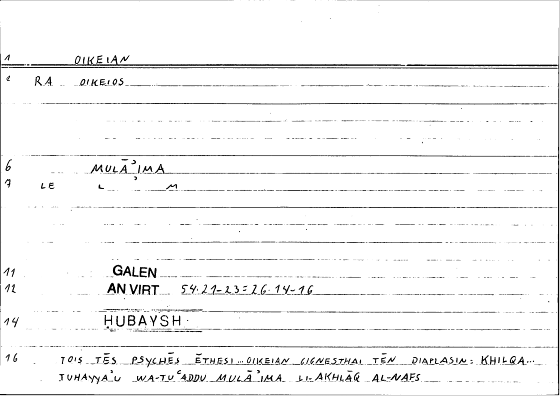 1 OIKEIAN
2 RA OIKEIOS
6 MULĀʾIMA
7 LE L ʾ M
11 GALEN
12 AN VIRT 54.21-23 = 26.14-16
14 ḤUBAYSH
16 TOIS TĒS PSYCHĒS ĒTHESI...OIKEIAN GIGNESTHAI TĒN DIAPLASIN: KHILQA...
TUHAYYAʾU WA-TUʿADDU MULĀʾIMA LI-AKHLĀQ AL-NAFS